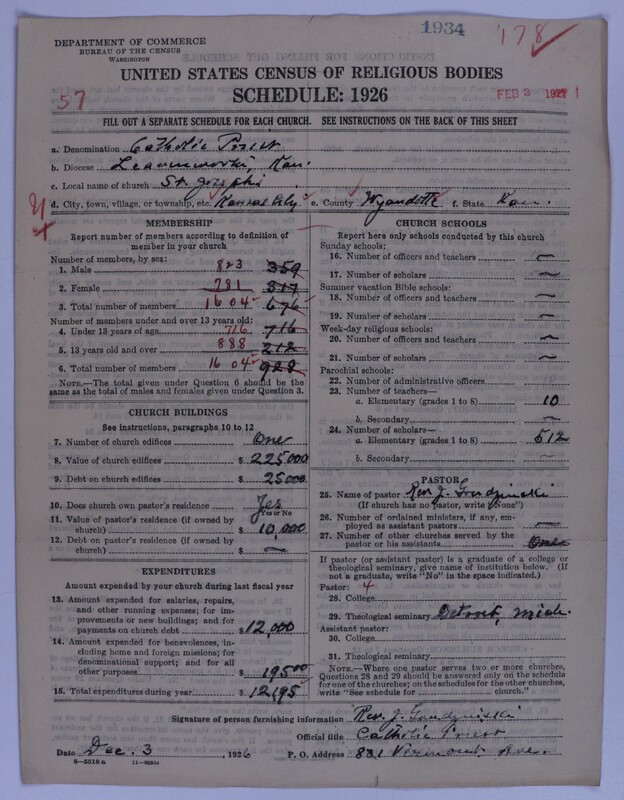 1934
178
DEPARTMENT OF COMMERCE
BUREAU OF THE CENSUS
WASHINGTON
UNITED STATES CENSUS OF RELIGIOUS BODIES
SCHEDULE: 1926
57
FEB 3 1927
FILL OUT A SEPARATE SCHEDULE FOR EACH CHURCH. SEE INSTRUCTIONS ON THE BACK OF THIS SHEET
a. Denomination Catholic
b. Diocese Kan.
c. Local name of church St. Josephs
d. City, town, village, or township, etc. Kansas City e. County Wyandotte f. State Kan.
MEMBERSHIP
Report number of members according to definition of
member in your church
Number of members, by sex:
1. Male 823 359
2. Female 781 317
3. Total number of members 1604 676
Number of members under and over 13 years old:
4. Under 13 years of age 716 716
5. 13 years old and over 888 212
6. Total number of members 1604 928
NOTE.—The total given under Question 6 should be the
same as the total of males and females given under Question 3.
CHURCH BUILDINGS
See instructions, paragraphs 10 to 12
7. Number of church edifices One
8. Value of church edifices $ 225,000
9. Debt on church edifices $ 25000
10. Does church own pastor's residence Yes
Yes or No
11. Value of pastor's residence (if owned by
church) $ 10,000
12. Debt on pastor's residence (if owned by
church) $ —
EXPENDITURES
Amount expended by your church during last fiscal year
13. Amount expended for salaries, repairs,
and other running expenses; for im-
provements or new buildings; and for
payments on church debt $ 12,000
14. Amount expended for benevolences, in-
cluding home and foreign missions; for
denominational support; and for all
other purposes $ 195.00
15. Total expenditures during year $ 12195
CHURCH SCHOOLS
Report here only schools conducted by this church
Sunday schools:
16. Number of officers and teachers —
17. Number of scholars —
Summer vacation Bible schools:
18. Number of officers and teachers —
19. Number of scholars —
Week-day religious schools:
20. Number of officers and teachers —
21. Number of scholars —
Parochial schools:
22. Number of administrative officers —
23. Number of teachers—
a. Elementary (grades 1 to 8) 10
b. Secondary —
24. Number of scholars—
a. Elementary (grades 1 to 8) 512
b. Secondary —
PASTOR
25. Name of pastor Rev. J.
(If church has no pastor, write "None")
26. Number of ordained ministers, if any, em-
ployed as assistant pastors —
27. Number of other churches served by the
pastor or his assistants One
If pastor (or assistant pastor) is a graduate of a college or
theological seminary, give name of institution below. (If
not a graduate, write "No" in the space indicated.)
Pastor: 4
28. College
29. Theological seminary Detroit, Mich.
Assistant pastor:
30. College
31. Theological seminary
NOTE.—Where one pastor serves two or more churches,
Questions 28 and 29 should be answered only on the schedule
for one of the churches; on the schedules for the other churches,
write "See schedule for church."
Signature of person furnishing information Rev. J.
Official title Catholic Priest
Date Dec. 3, 1926 P. O. Address 831 Vermont Ave.
8—5518 a